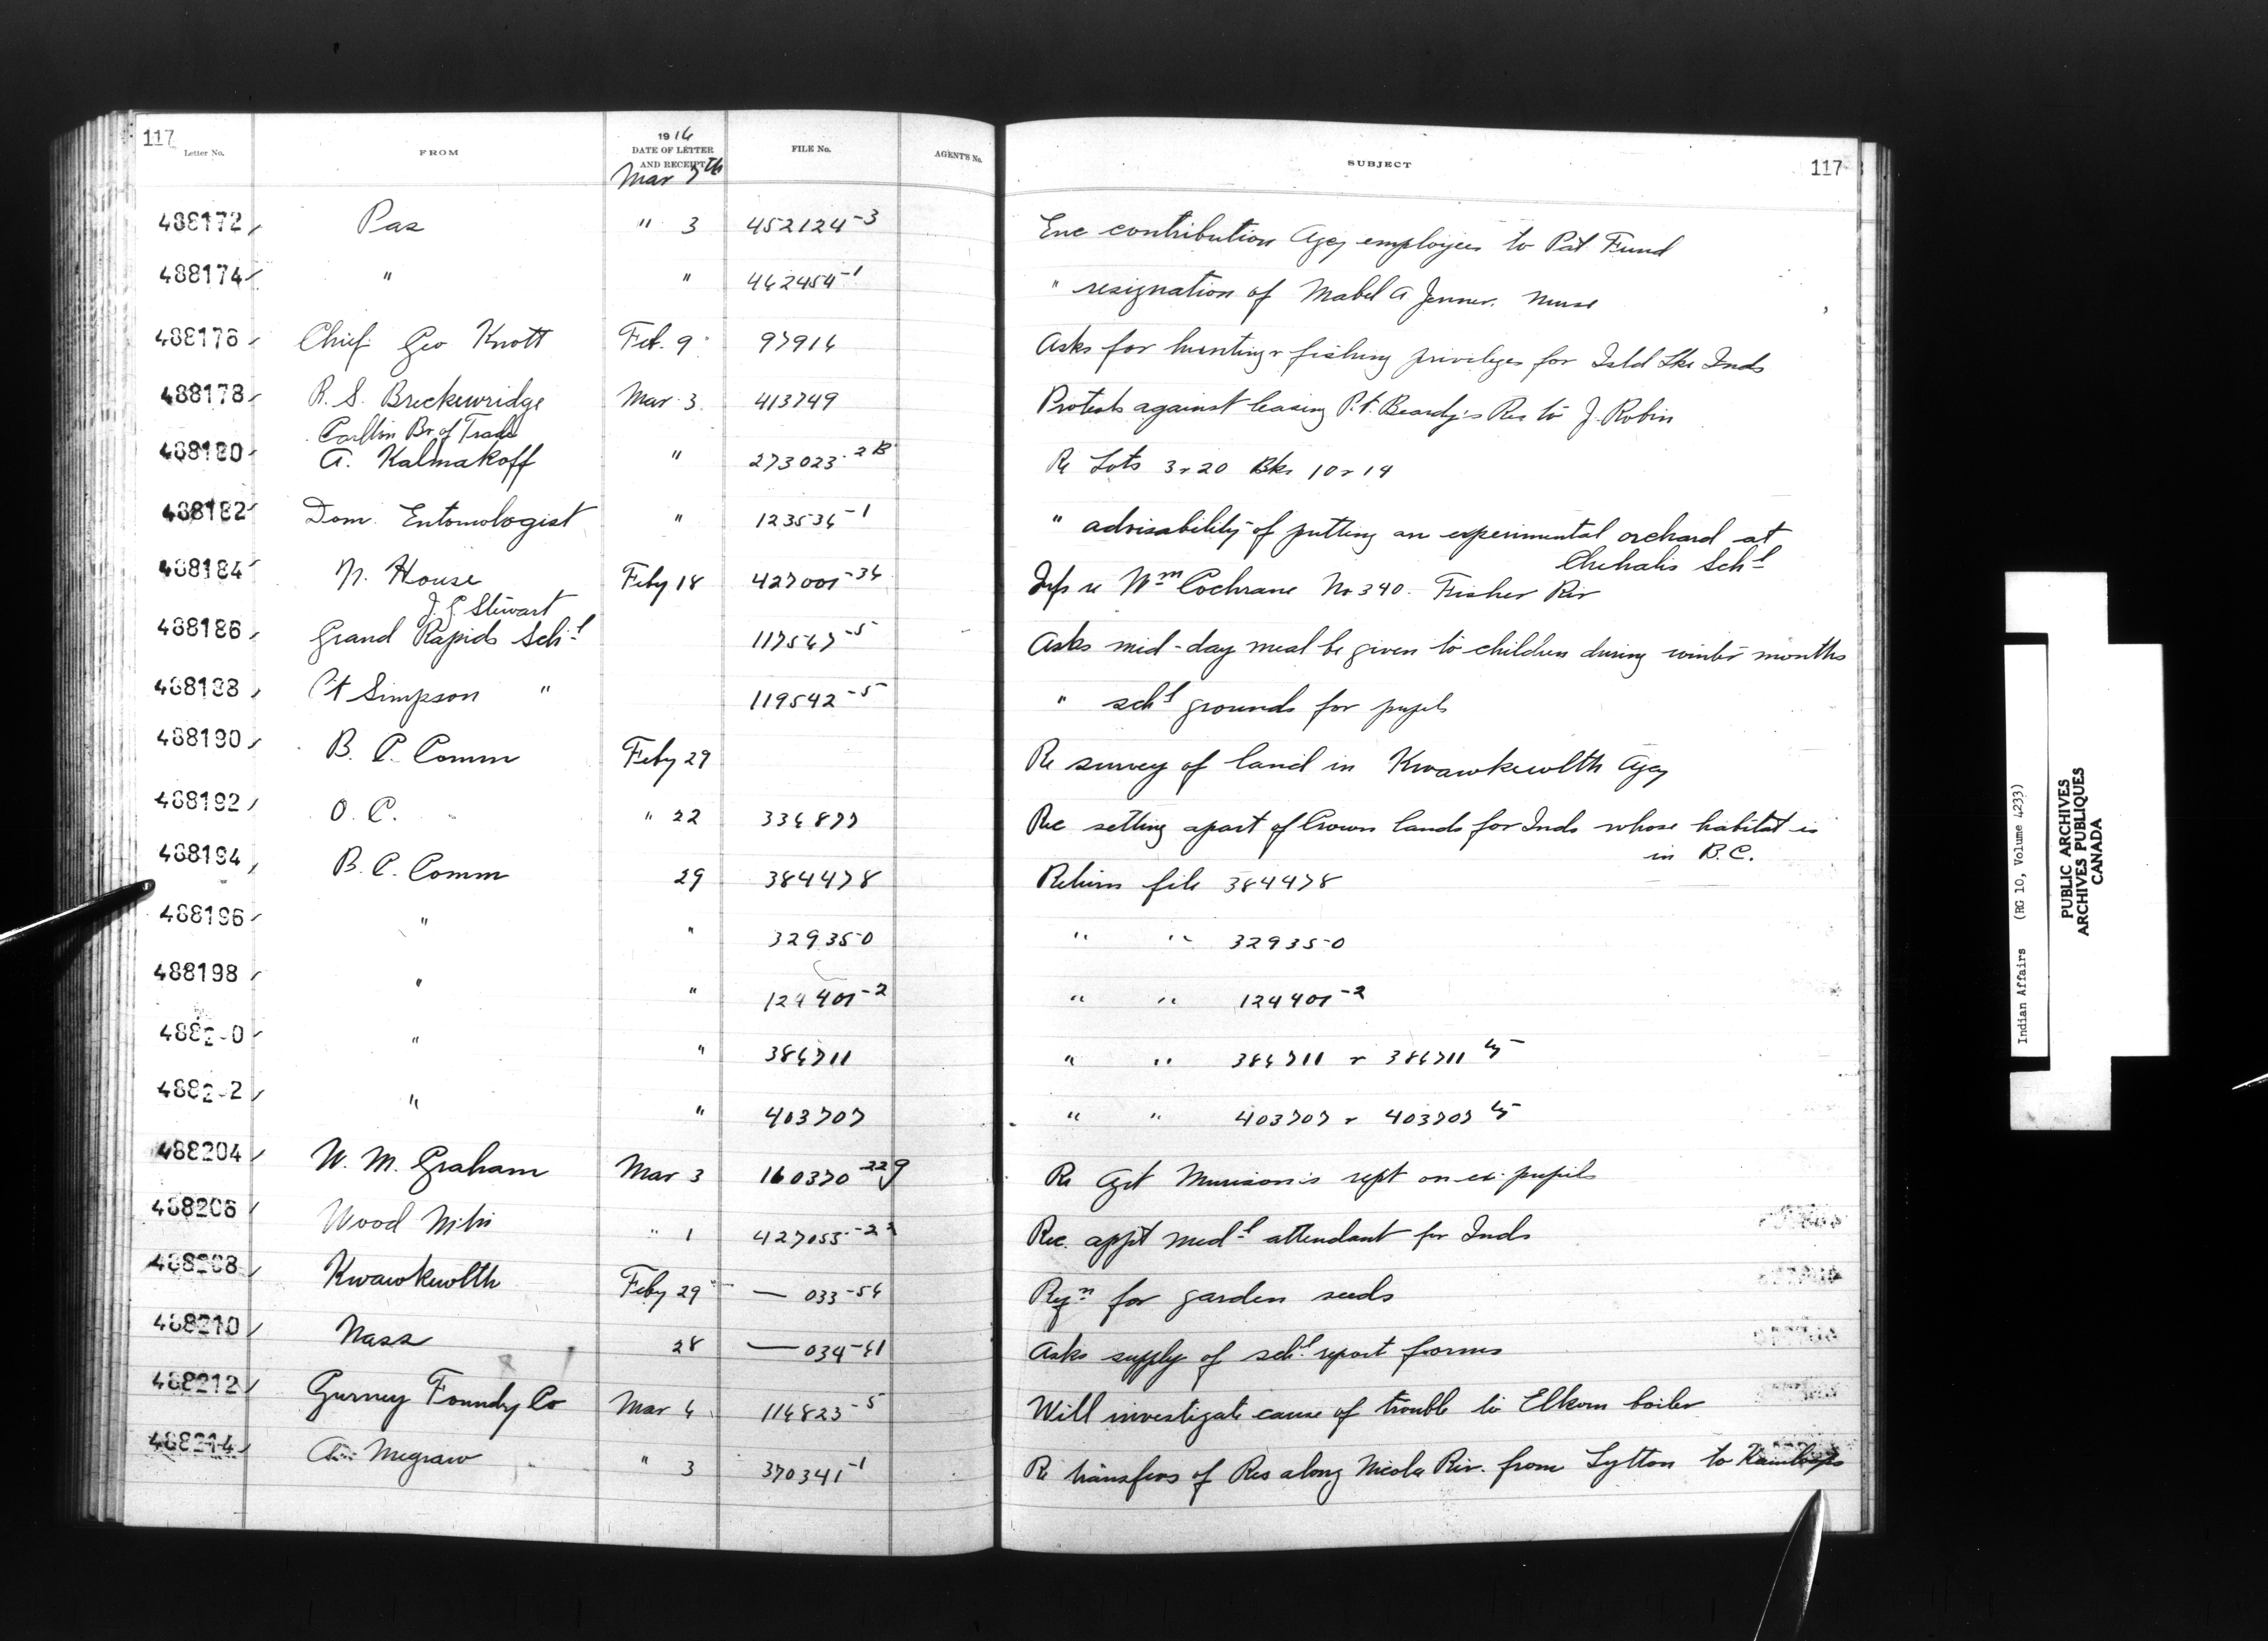 117
Letter No. FROM 1916 DATE OF LETTER AND RECEIPT FILE No. AGENT'S No. SUBJECT 117
Mar 7th
488172 Pas " 3 452124-3 Enc contribution Agcy employees to Pat Fund
488174 " " 462454-1 " resignation of Mabel A Jenner. Nurse
488176 Chief Geo Knott Feb. 9 97916 Asks for hunting & fishing privileges for Isld Lke Inds
488178 R. S. Breckenridge Mar 3 413749 Protests against leasing Pt. Beardy's Res to J. Robin
Carlton Br of Trade
488180 A. Kalmakoff " 273023-2B Re Lots 3 & 20 Bks 10 & 14
488182 Dom. Entomologist " 123536-1 " advisability of putting an experimental orchard at
Chehalis Schl
488184 N. House Feby 18 427001-36 Inf re Wm Cochrane No 340. Fisher Riv
J. G. Stewart
488186 Grand Rapids Schl 117567-5 Asks mid-day meal be given to children during winter months
488188 Pt Simpson " 119542-5 " schl grounds for pupils
488190 B. C. Comm Feby 29 Re survey of land in Kwawkewlth Agcy
488192 O. C. " 22 336877 Rec setting apart of Crown lands for Inds whose habitat is
in B.C.
488194 B. C. Comm 29 384478 Return file 384478
488196 " " 329350 " " 329350
488198 " " 124401-2 " " 124401-2
488200 " " 386711 " " 386711 & 386711 ½
488202 " " 403707 " " 403707 & 403707 ½
488204 W. M. Graham Mar 3 160370-22G Re Agt Murison's rept on ex-pupils
488206 Wood Mtn " 1 427055-23 Rec. appt medl attendant for Inds
488208 Kwawkewlth Feby 29 — 033-56 Reqn for garden seeds
488210 Nass 28 — 034-61 Asks supply of schl report forms
488212 Gurney Foundry Co Mar 6 116823-5 Will investigate cause of trouble to Elkorn boiler
488214 Megraw " 3 370341-1 Re transfers of Res along Nicola Riv. from Lytton to Kamloops
Indian Affairs (RG 10, Volume 4233)
PUBLIC ARCHIVES
ARCHIVES PUBLIQUES
CANADA